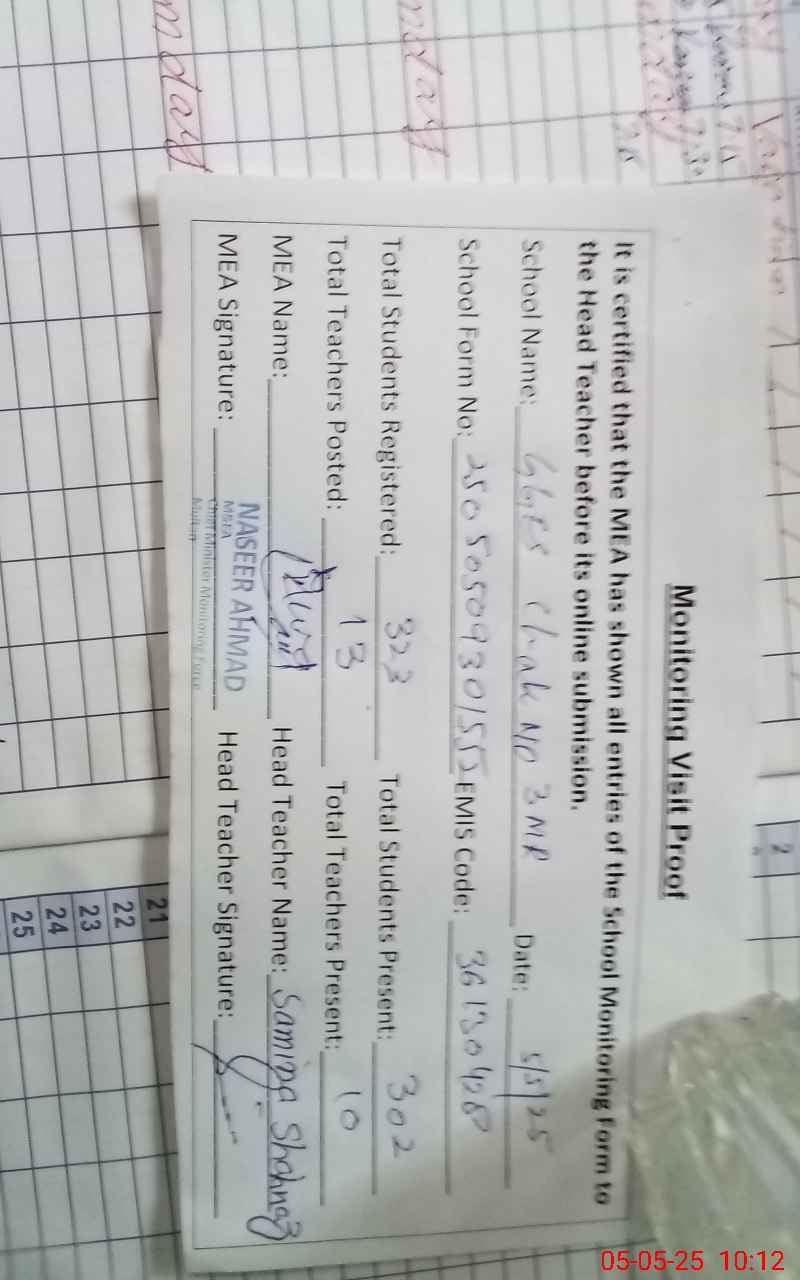 Monitoring Visit Proof
It is certified that the MEA has shown all entries of the School Monitoring Form to
the Head Teacher before its online submission.
School Name: GGES Chak NO 3 MR Date: 5/5/25
School Form No: EMIS Code: 36130428
Total Students Registered: 323 Total Students Present: 302
Total Teachers Posted: 13 Total Teachers Present: 10
MEA Name: Head Teacher Name: Samina Shahnaz
MEA Signature: Head Teacher Signature:
NASEER AHMAD
M&EA
Chief Minister Monitoring Force
Multan
2
21
22
23
24
25
05-05-25 10:12